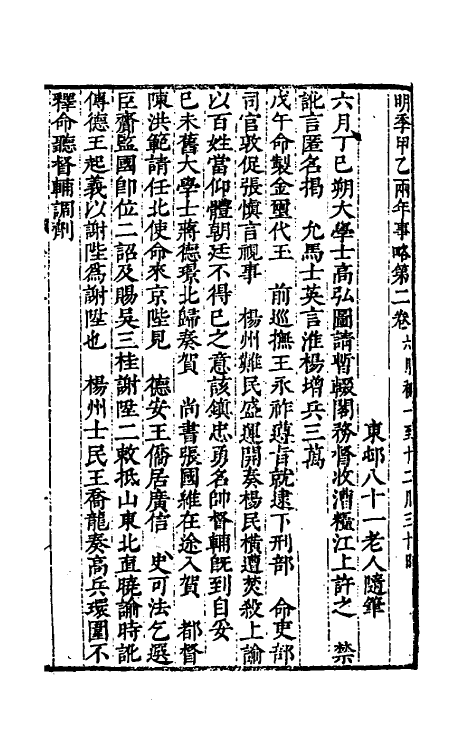 明季甲乙兩年事略第二卷 六月初一至十二月三十日
東邨八十一老人隨筆
六月丁巳朔大學士高弘圖請暫輟閣務督收漕糧江上許之　禁
訛言匿名揭　允馬士英言淮楊增兵三萬
戊午命製金璽代玉　前巡撫王永祚遵旨就逮下刑部　命吏部
司官敦促張愼言視事　楊州難民盛運開奏楊民橫遭焚殺上諭
以百姓當仰體朝廷不得已之意該鎮忠勇名帥督輔旣到自妥
已未舊大學士蔣德璟北歸奏賀　尚書張國維在途入賀　都督
陳洪範請任北使命來京陛見　德安王僑居廣信　史可法乞選
臣齋監國卽位二詔及賜吳三桂謝陞二敕抵山東北直曉諭時訛
傳德王起義以謝陞爲謝陞也　楊州士民王喬龍奏高兵環圍不
釋命聽督輔調劑